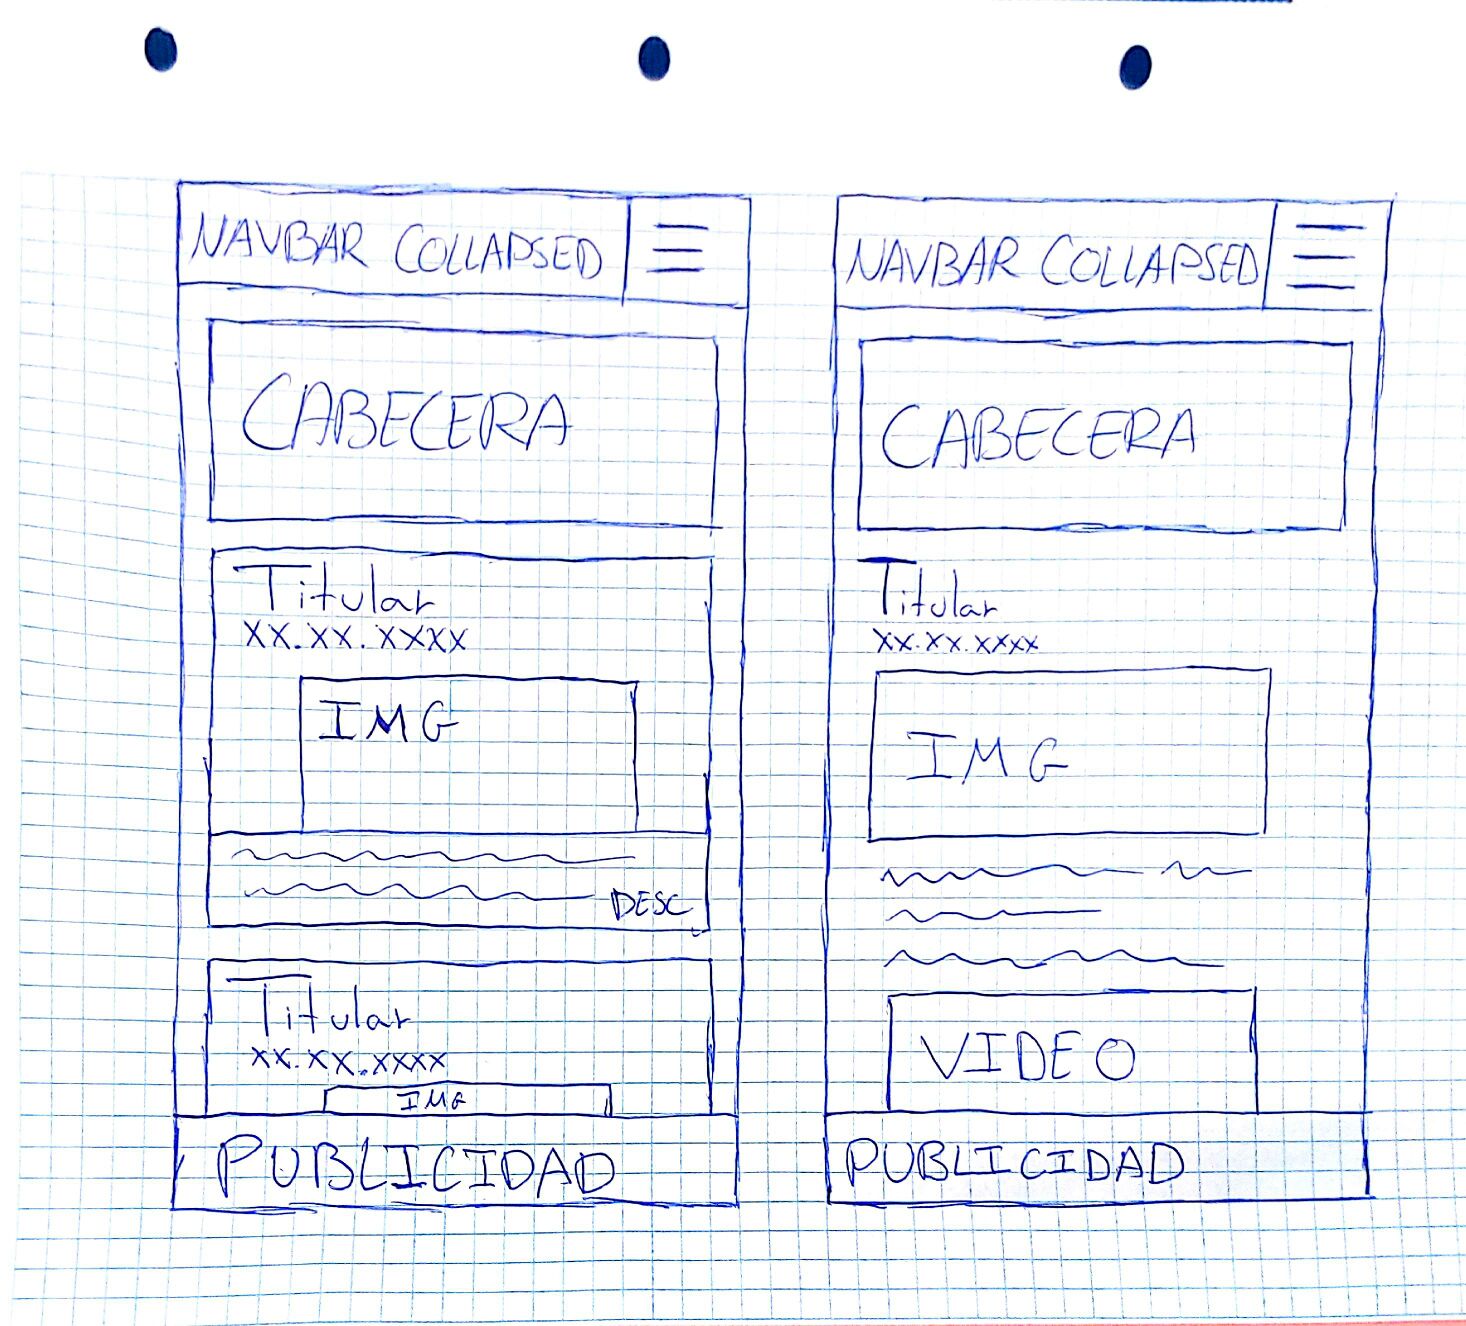 NAVBAR COLLAPSED
CABECERA
Titular
XX.XX.XXXX
IMG
DESC
Titular
XX.XX.XXXX
IMG
PUBLICIDAD
NAVBAR COLLAPSED
CABECERA
Titular
XX.XX.XXXX
IMG
VIDEO
PUBLICIDAD